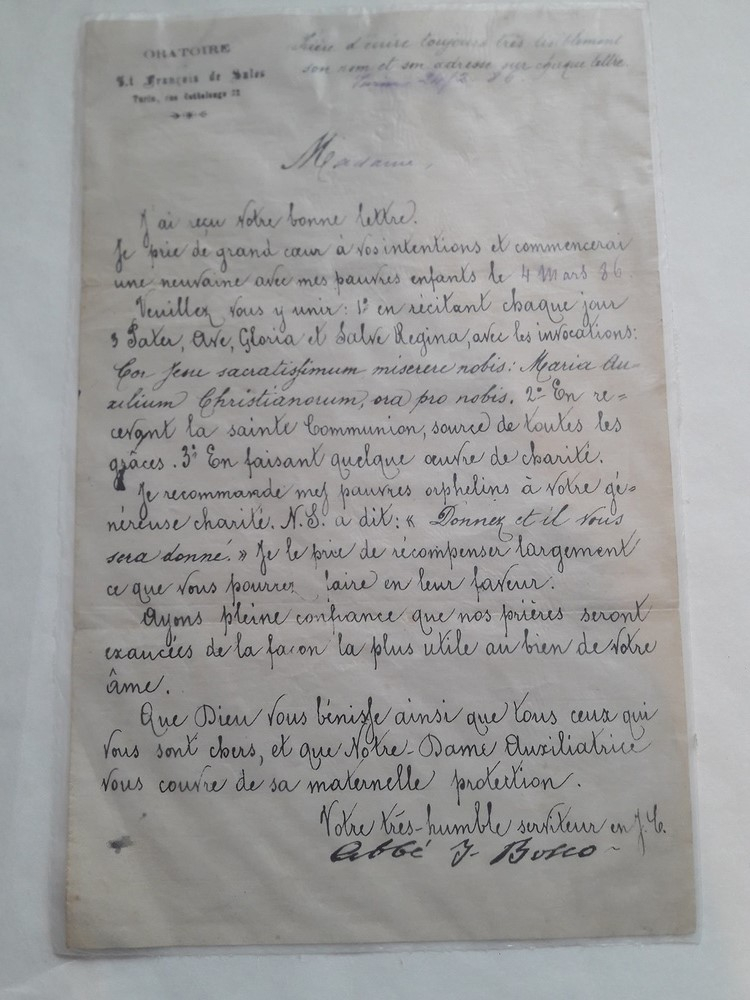 ORATOIRE
St François de Sales
Turin, rue Cottolengo 32
Prière d'écrire toujours très lisiblement
son nom et son adresse sur chaque lettre
Turin 24/2 86
Madame,
J'ai reçu votre bonne lettre.
Je prie de grand cœur à vos intentions et commencerai
une neuvaine avec mes pauvres enfants le 4 Mars 86.
Veuillez vous y unir: 1º en récitant chaque jour
3 Pater, Ave, Gloria et Salve Regina, avec les invocations:
Cor Jesu sacratissimum miserere nobis: Maria Au-
xilium Christianorum, ora pro nobis. 2º En re-
cevant la sainte Communion, source de toutes les
grâces. 3º En faisant quelque œuvre de charité.
Je recommande mes pauvres orphelins à votre gé-
néreuse charité. N.S. a dit: « Donnez et il vous
sera donné. » Je le prie de récompenser largement
ce que vous pourrez faire en leur faveur.
Ayons pleine confiance que nos prières seront
exaucées de la façon la plus utile au bien de votre
âme.
Que Dieu vous bénisse ainsi que tous ceux qui
vous sont chers, et que Notre-Dame Auxiliatrice
vous couvre de sa maternelle protection.
Votre très-humble serviteur en J.C.
Abbé J. Bosco